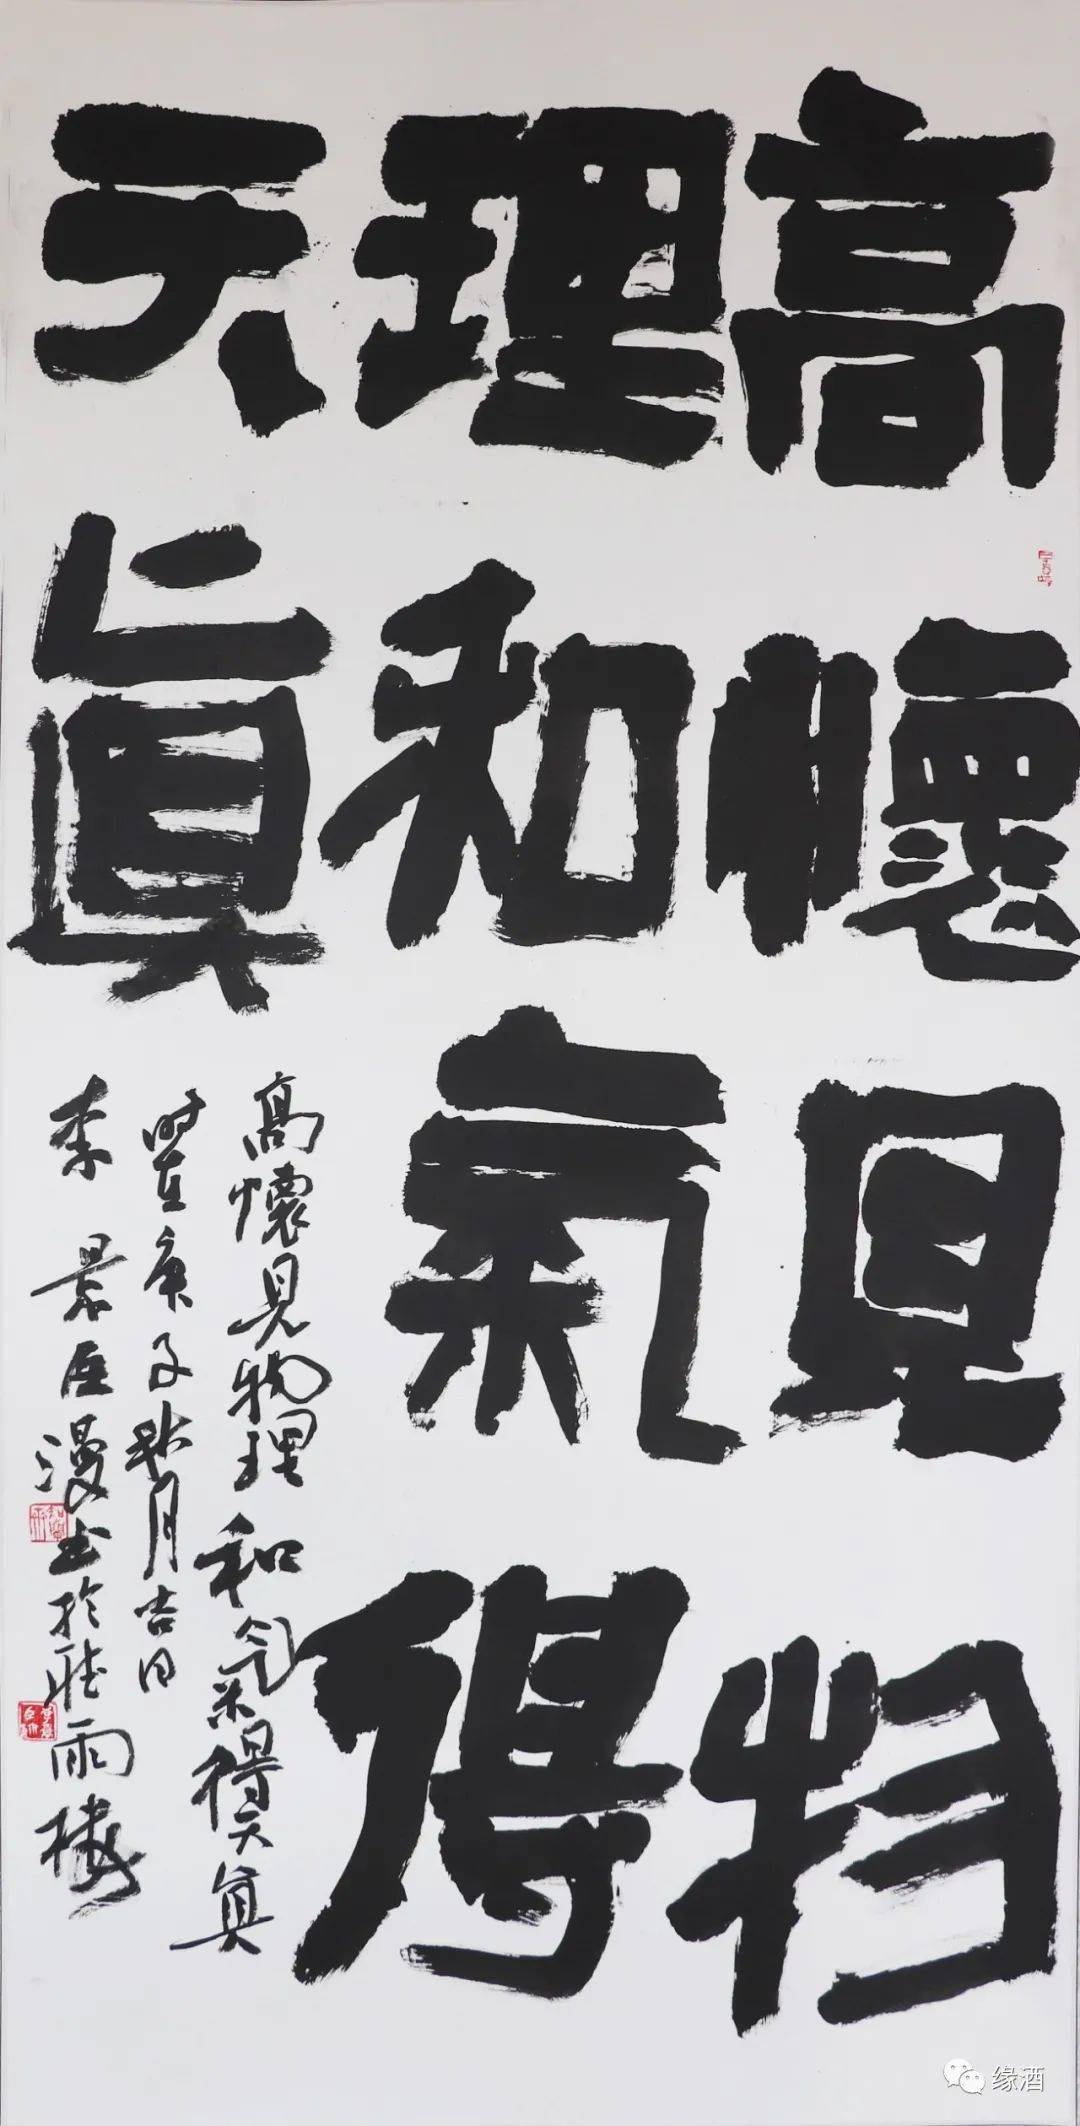 高懷見物
理和氣得
天真
高懷見物理和氣得天真
時在庚子秋月吉日
李景臣漫书於聽雨樓
缘酒